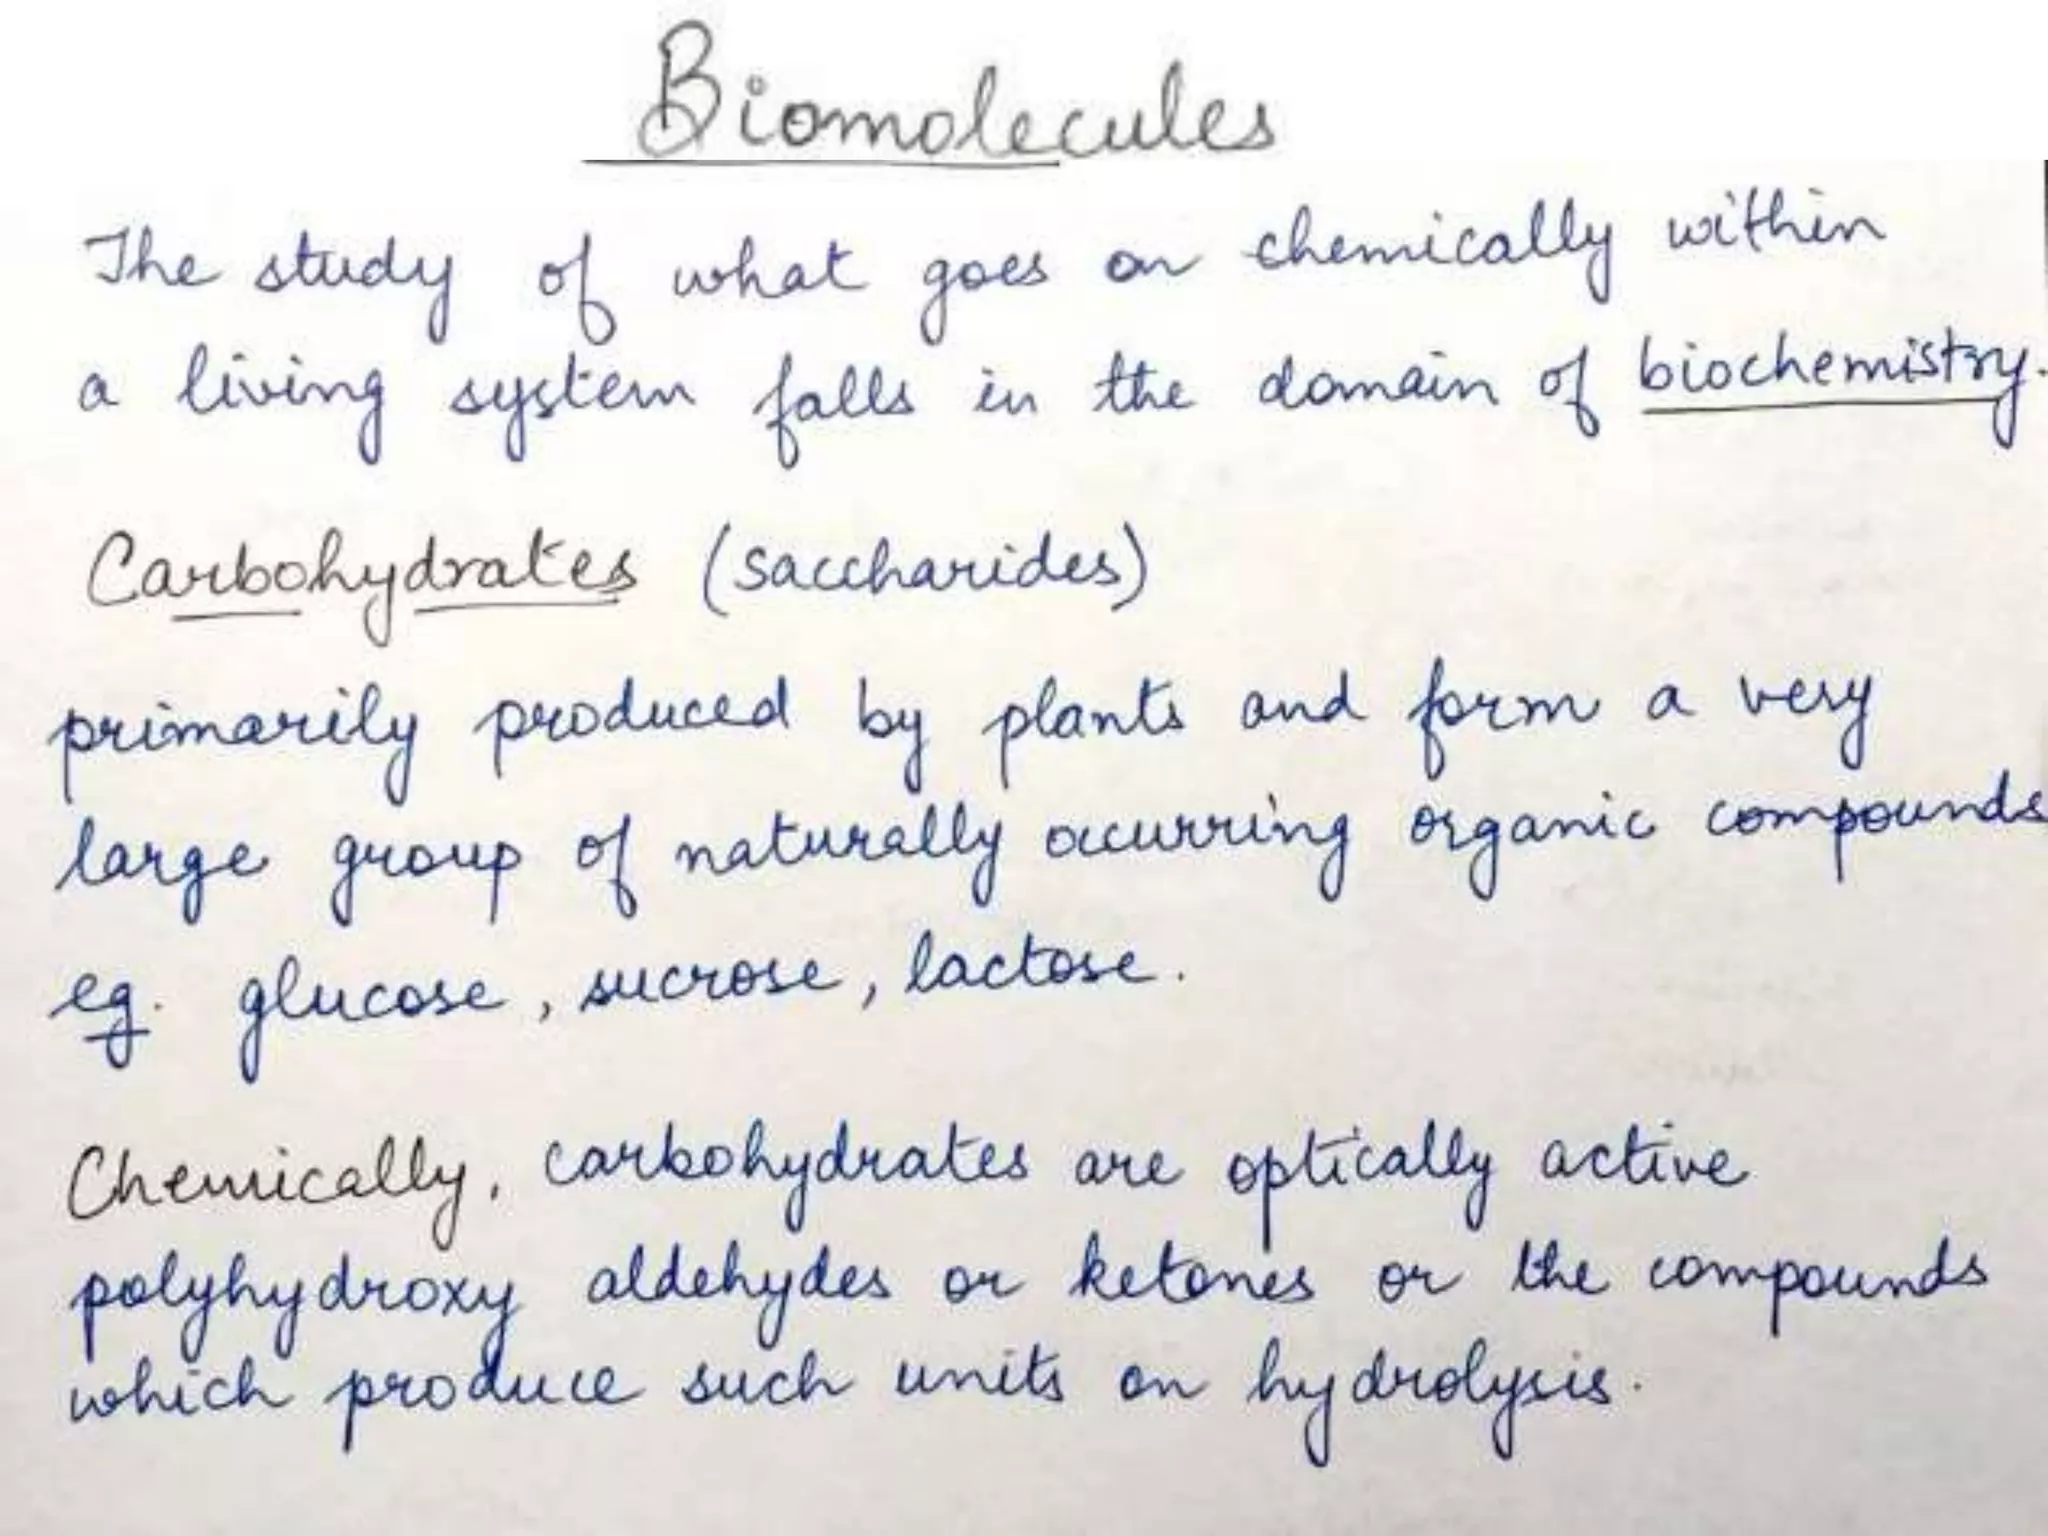 Biomolecules
The study of what goes on chemically within
a living system falls in the domain of biochemistry.
Carbohydrates (saccharides)
primarily produced by plants and form a very
large group of naturally occurring organic compounds
eg. glucose, sucrose, lactose.
Chemically, carbohydrates are optically active
polyhydroxy aldehydes or ketones or the compounds
which produce such units on hydrolysis.